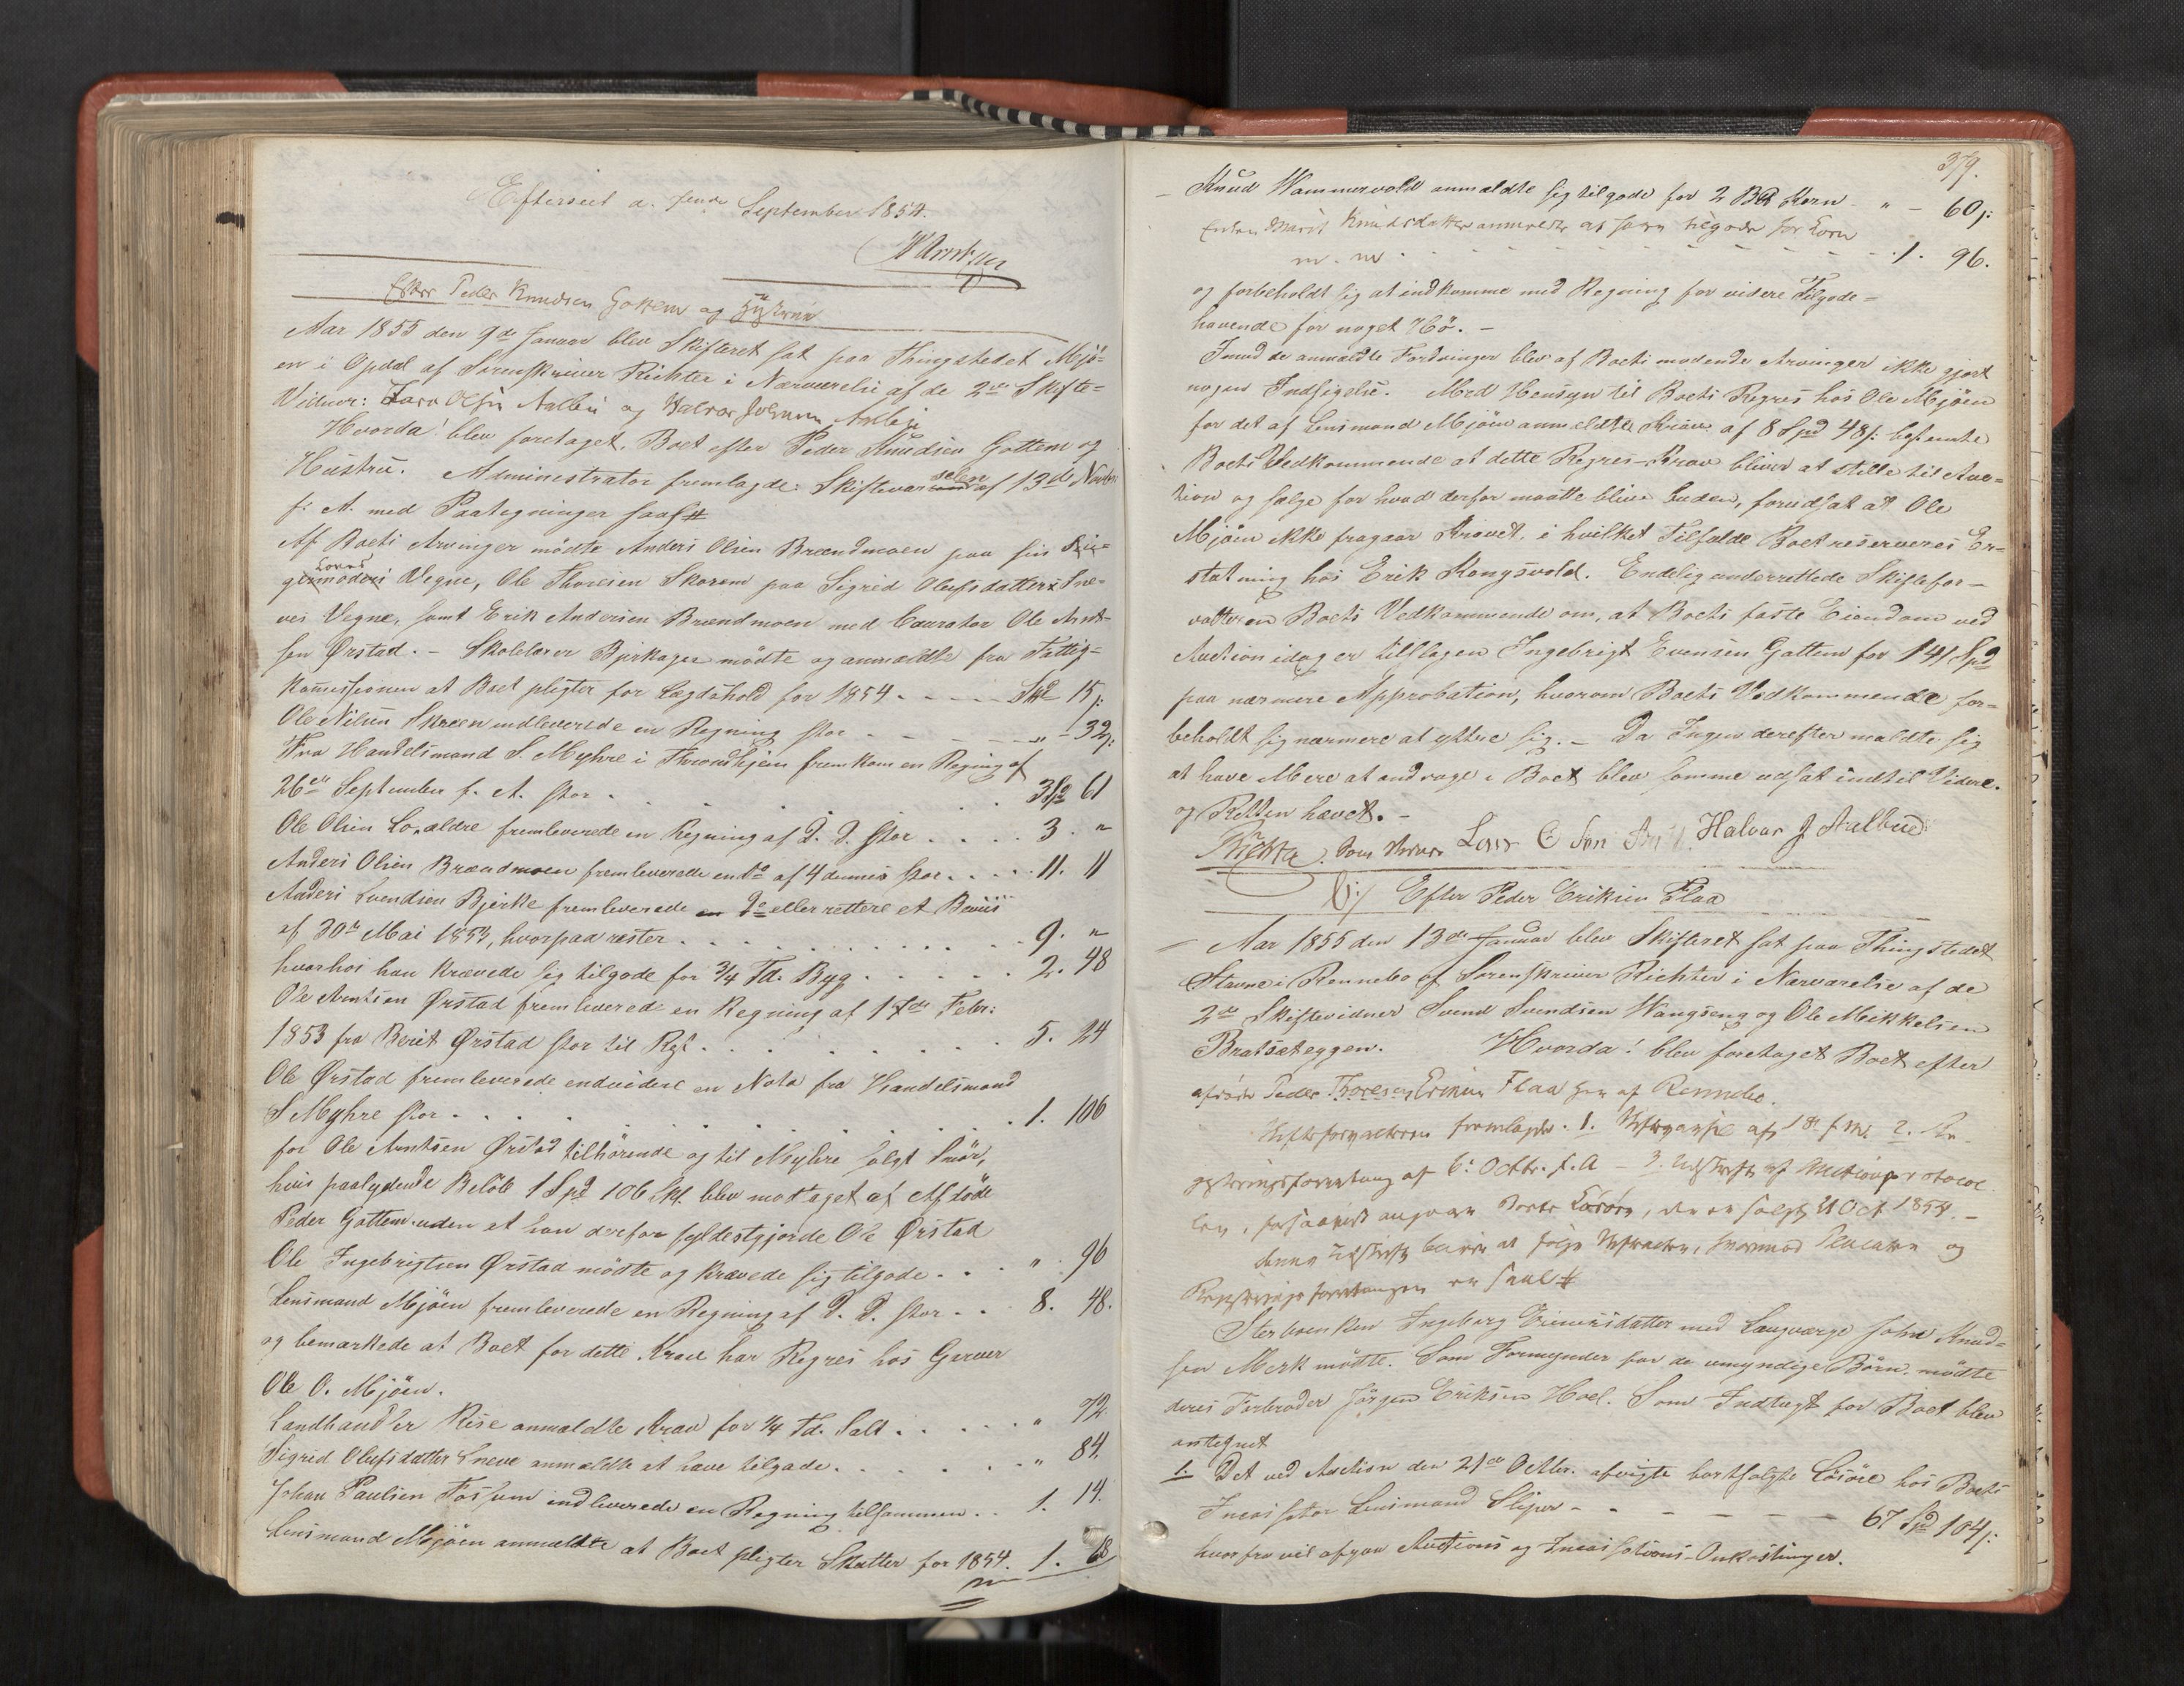 Efterseet a. September 1854.
Efter Peder Knudsen Gottem og Hustrue
Aar 1855 den 9de Januar blev Skifteret sat paa Thingstedet Mjö=
en i Opdal af Sorenskriver Richter i Nærværelse af de 2de Skifte=
Vidner: Lars Olsen Aalbu og Halvor Johnsen Aalbu
Hvorda! blev foretaget Boet efter Peder Knudsen Gottem og
Hustru. Administrator fremlagde: Skiftevarselene af 13de Novbr
f. A. med Paategninger saal#
Af Boets Arvinger mödte Anders Olsen Brændmoen paa sin
Vegne, Ole Thoresen Skorem paa Sigrid Olufsdatter Sne=
ves Vegne, samt Erik Andersen Brændmoen med Courator Ole Arnt=
sen Ørstad. - Skolelærer Bjerkager mödte og anmeldte fra Fattig=
kommissionen at Boet pligter for Lægdshold for 1854 - - - - 15 s:
Ole Nilsen Skreen indleverede en Regning stor - - - - " - 32 s:
Fra Handelsmand S. Myhre i Throndhjem fremkom en Regning af
26de September f. A. stor . . . . . 3 Spd 61
Ole Olsen Lo, ældre fremleverede en Regning af D. D. stor . . . . 3. "
Anders Olsen Brændmoen fremleverede en Do af 4 dennes stor . . . . 11. 11
Anders Svendsen Bjerke fremleverede en Do eller rettere et Beviis
af 30te Mai 1853, hvorpaa rester . . . . . . . 9. "
hvorhos han krævede sig tilgode for 3/4 Td. Byg . . . . . 2. 48
Ole Arntsen Ørstad fremleverede en Regning af 17de Febr:
1853 fra Berit Ørstad stor til Rest . . . . . . 5. 24
Ole Ørstad fremleverede endvidere en Nota fra Handelsmand
S Myhre stor . . . . . . . . 1. 106
for Ole Arntsen Ørstad tilhörende og til Myhre solgt Smör,
hvis paalydende Belöb 1 Spd 106 Sk. blev modtaget af Aflöde
Peder Gottem uden at han derfor fyldestgjorde Ole Ørstad
Ole Ingebrigtsen Ørstad mödte og krævede sig tilgode . . . " 96
Lensmand Mjöen fremleverede en Regning af D. D. stor . . . 8. 48.
og bemærkede at Boet for dette Krav har Regres hos Garver
Ole O. Mjöen.
Landhandler Rise anmeldte Krav for 1/4 Td. Salt . . . . . " 72
Sigrid Olufsdatter Sneve anmeldte at have tilgode . . . . . " 84.
Johan Paulsen Fossum indleverede en Regning tilsammen . . 1. 14.
Lensmand Mjöen anmeldte at Boet pligter Skatter for 1854. 1. 68
379.
- Knud Wammervold anmældte sig tilgode for 2 Korn - " - 60 s:
Enken Marit Knudsdatter anmeldte at have tilgode for Korn
m. m. - - - - - - - - 1. 96.
og forbeholdt sig at indkomme med Regning for videre Tilgode=
havende for noget Hö. -
Imod de anmældte Fordringer blev af Boets mödende Arvinger ikke gjort
nogen Indsigelse. Med Hensyn til Boets Regres hos Ole Mjöen
for det af Lensmand Mjöen anmeldte Krav af 8 Spd 48 s: bestemte
Boets Vedkommende at dette Regres-Krav bliver at stille til Auc=
tion og sælge for hvad derfor maatte blive buden, forudsat at Ole
Mjöen ikke fragaar Kravet, i hvilket Tilfælde Boet reserveres Er=
statning hos Erik Kongsvold. Endelig underrettede Skiftefor=
valteren Boets Vedkommende om, at Boets faste Eiendom ved
Auction idag er tilslagen Ingebrigt Evensen Gottem for 141 Spd
paa nærmere Approbation, hvorom Boets Vedkommende for=
beholdt sig nærmere at yttre sig. - Da Ingen derefter meldte sig
at have Mere at andrage i Boet blev samme udsat indtil Videre.
og Retten hævet. -
Richter. Som Vidner Lars O Sen Halvor J Aalbue
6:/ Efter Peder Eriksen Flaa
- Aar 1855 den 13de Januar blev Skifteret sat paa Thingstedet
Stavne i Rennebo af Sorenskriver Richter i Nærværelse af de
2de Skiftevidner Svend Svendsen Wangseng og Ole Mikkelsen
Bratsæteggen. Hvorda! blev foretaget Boet efter
afdöde Peder Eriksen Flaa her af Rennebo.
Skifteforvalteren fremlagde. 1. af 18 f. M. 2. Re-
gistreringsforretning af 6: Octbr. f. A - 3. Udskrift af Auctionsprotocol
len, forsaavidt angaar Boets Lösöre, der er solgt 21 Oct 1854. -
denne Udskrift bliver at fölge og
Registreringsforretningen er saal#
Sterboenken Ingeborg Eriksdatter med Laugværge John Knud=
sen Merk mödte. Som Formynder for de umyndige Börn mödte
deres Farbroder Jörgen Eriksen Hoel. Som Indtægt for Boet blev
antegnet
1: Det ved Auction den 21de Octbr. afvigte bortsolgte Lösöre hos Boets
Incassator Lensmand Sliper - - - - - - - 67 Spd 104 s:
hvorfra vil afgaa Auctions og Incassations-Omkostninger.